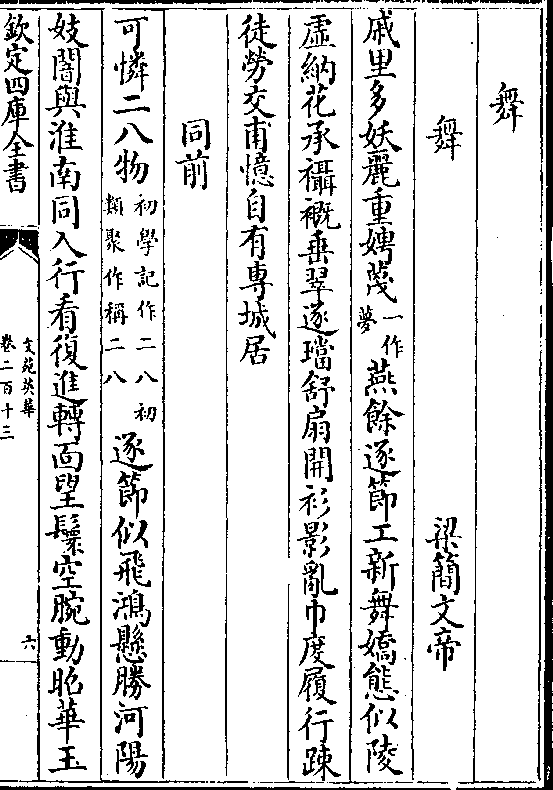 舞
舞　梁簡文帝
戚里多妖麗重娉蔑一作夢燕餘逐節工新舞嬌態似陵
虛納花承襵襵垂翠逐璫舒扇開衫影亂巾度履行疎
徒勞交甫憶自有專城居
同前
可憐二八物初學記作二八初類聚作稱二八逐節似飛鴻懸勝河陽
妓闇與淮南同入行看復進轉面望鬟空腕動苕華玉
欽定四庫全書
文苑英華
卷二百十三
六